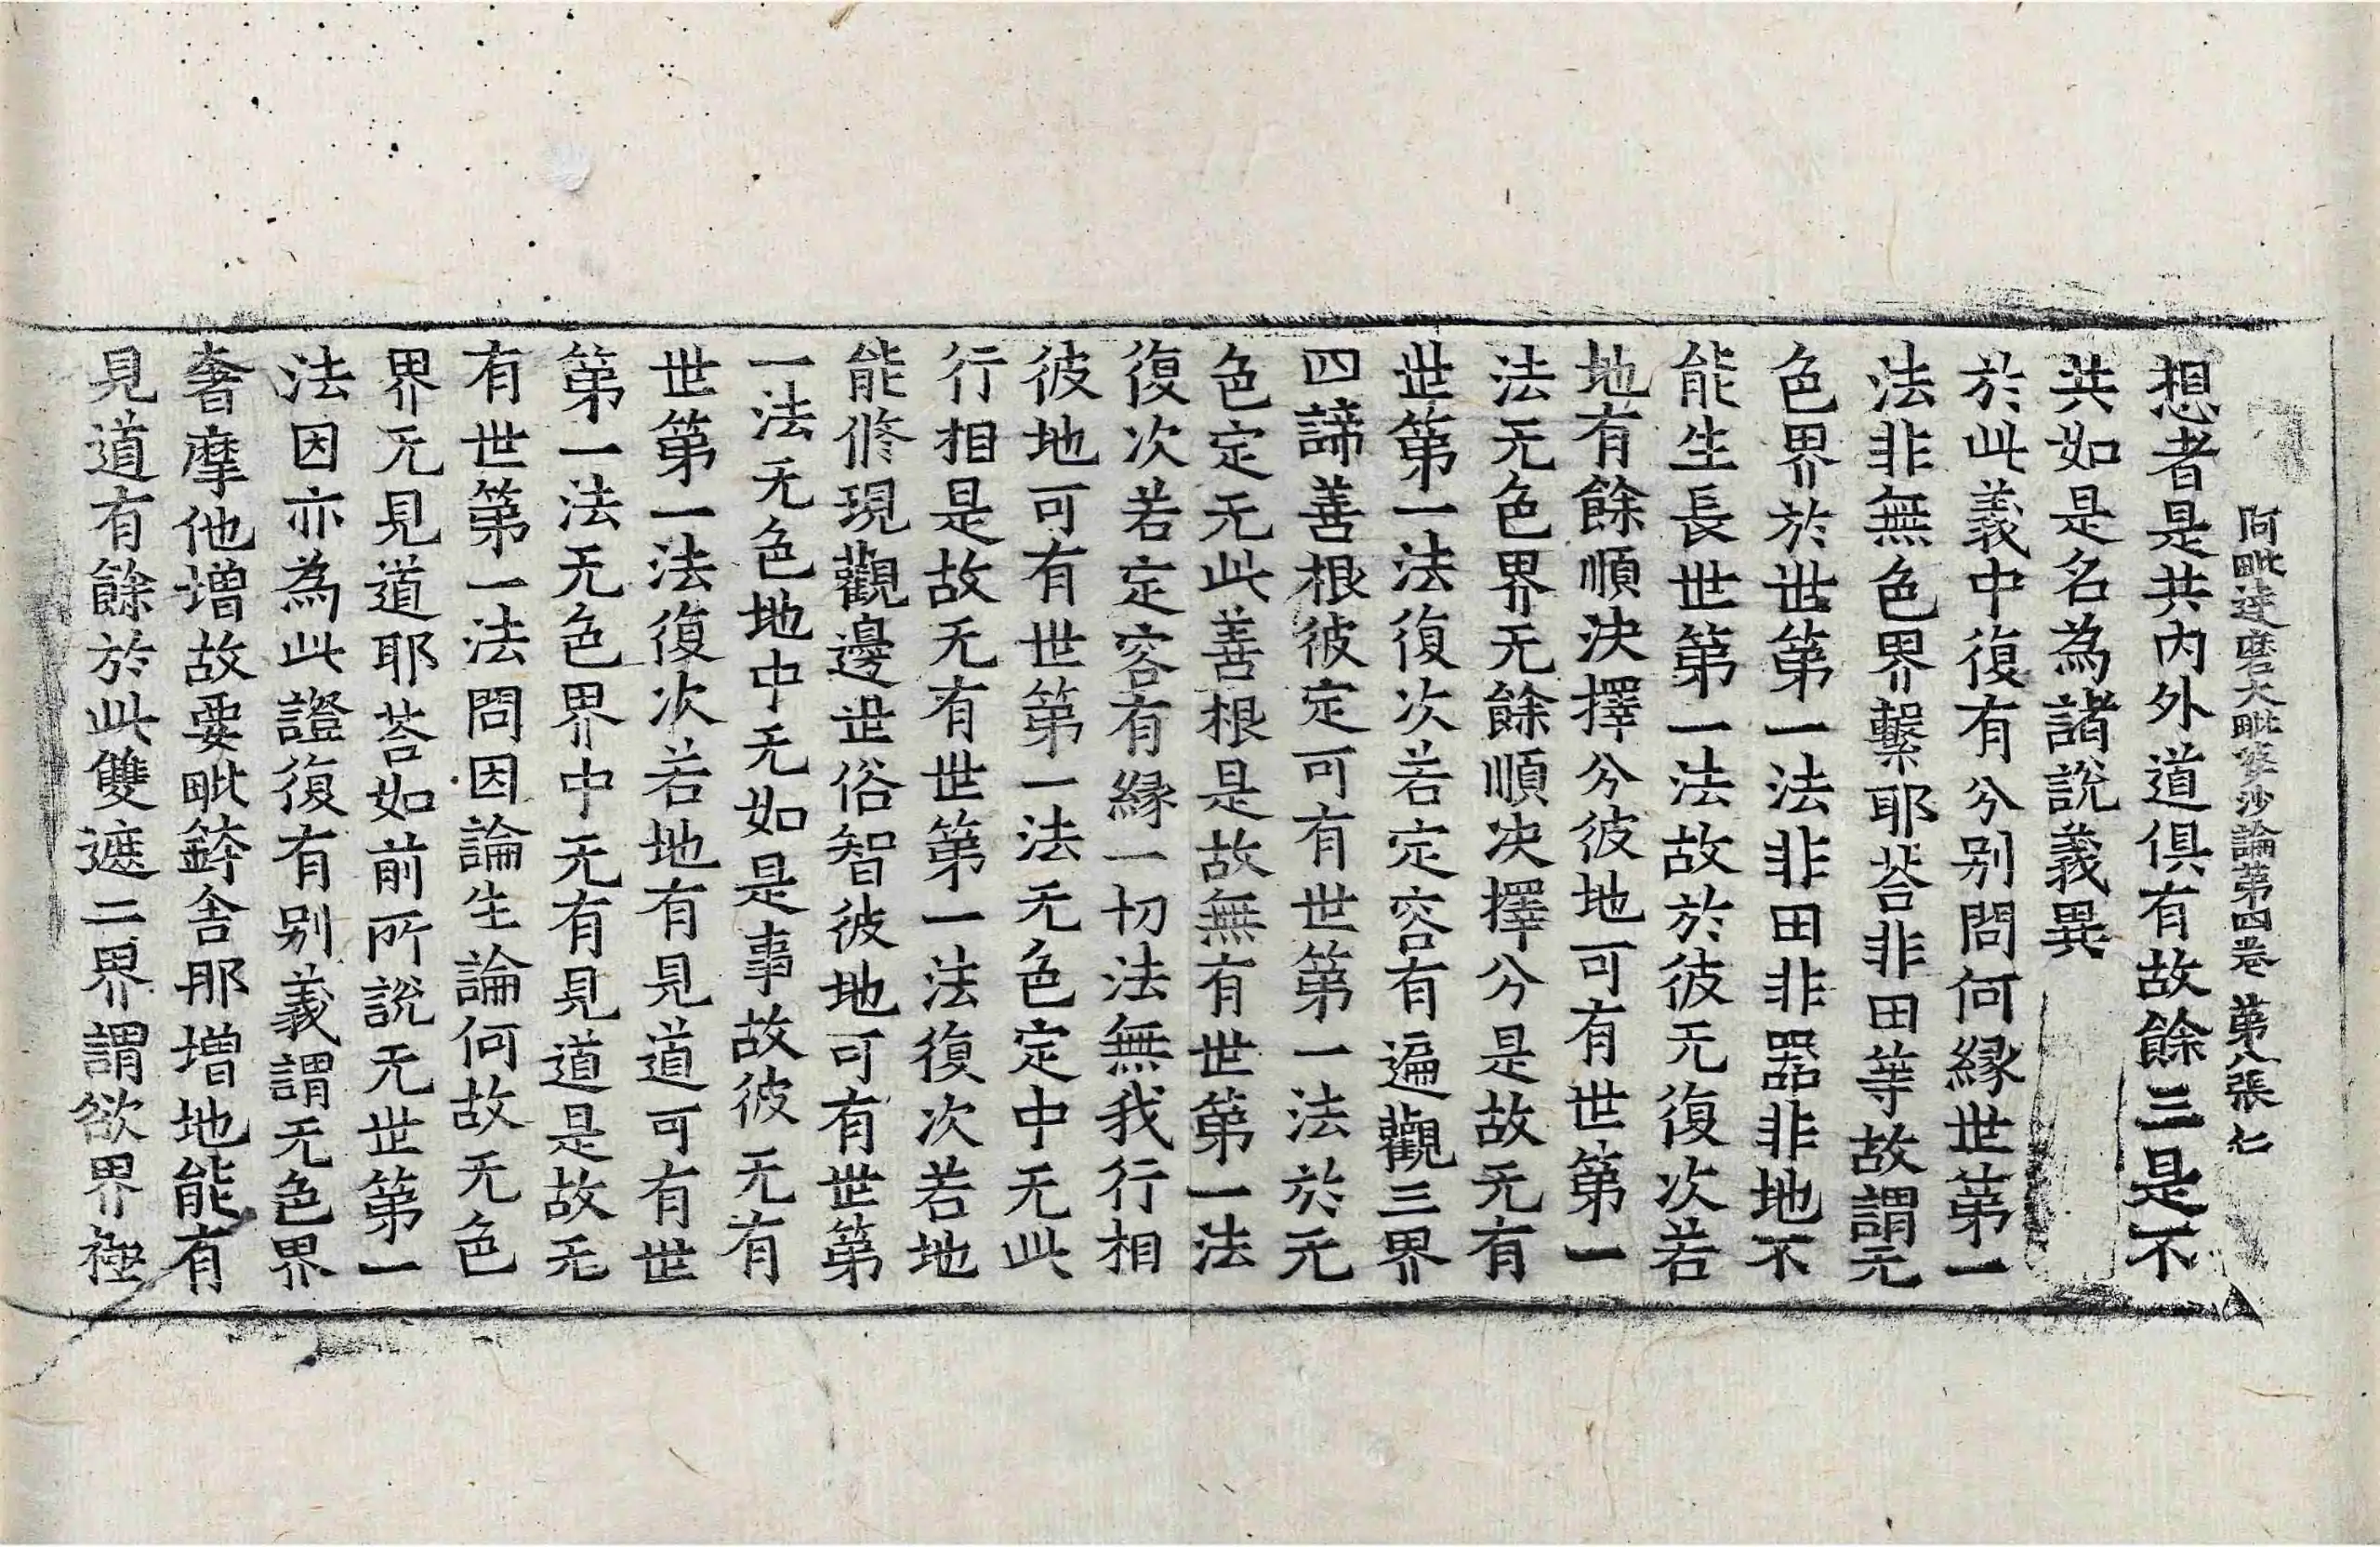 阿毗達磨大毗婆沙論第四卷 第八張 仁
想者是共內外道俱有故餘三是不
共如是名為諸說義異
於此義中復有分别問何緣世第一
法非無色界繫耶荅非田等故謂无
色界於世第一法非田非器非地不
能生長世第一法故於彼无復次若
地有餘順決擇分彼地可有世第一
法无色界无餘順决擇分是故无有
世第一法復次若定容有遍觀三界
四諦善根彼定可有世第一法於无
色定无此善根是故無有世第一法
復次若定容有緣一切法無我行相
彼地可有世第一法无色定中无此
行相是故无有世第一法復次若地
能修現觀邊世俗智彼地可有世第
一法无色地中无如是事故彼无有
世第一法復次若地有見道可有世
第一法无色界中无有見道是故无
有世第一法問因論生論何故无色
界无見道耶荅如前所說无世第一
法因亦為此證復有别義謂无色界
奢摩他增故要毗鉢舍那增地能有
見道有餘於此雙遮二界謂欲界極